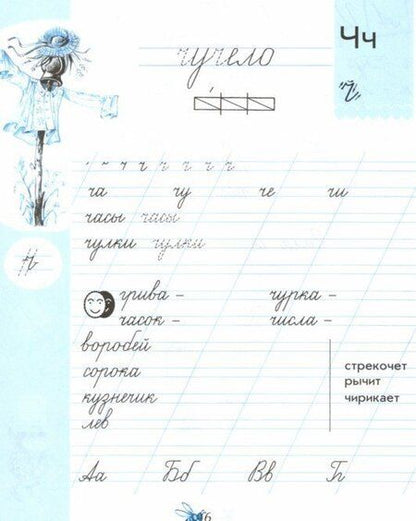 Чч
чучело
ч
ч ч ч ч ч ч ч ч
ча чу че чи
часы часы
чулки чулки
ч
грива – чурка –
часок – числа –
воробей
сорока
кузнечик
лев
стрекочет
рычит
чирикает
Аа Бб Вв Ћ